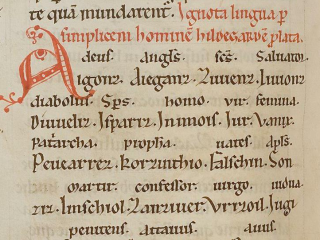 te quā mundarent᷑. Ignota lingua ꝑ
simplicem hominē hildegardem ꝓlata.
deus. angłs. scs̄. Saluator.
Aigonz. Aieganz. Zuuenz. Liuionz
diabolus. Sp̄s. homo. vir. femina.
Diuueliz. Isparriz. Inimois. Jur. Vanix.
Patriarcha. propheta. uates. apłs.
Peuearrez. Korzinthio. Falschin. Son
martir. confessor. uirgo. uidua
ziz. Linschiol. Zanziuer. Vrrizoil. Jugi
penitens. attauus. auus.